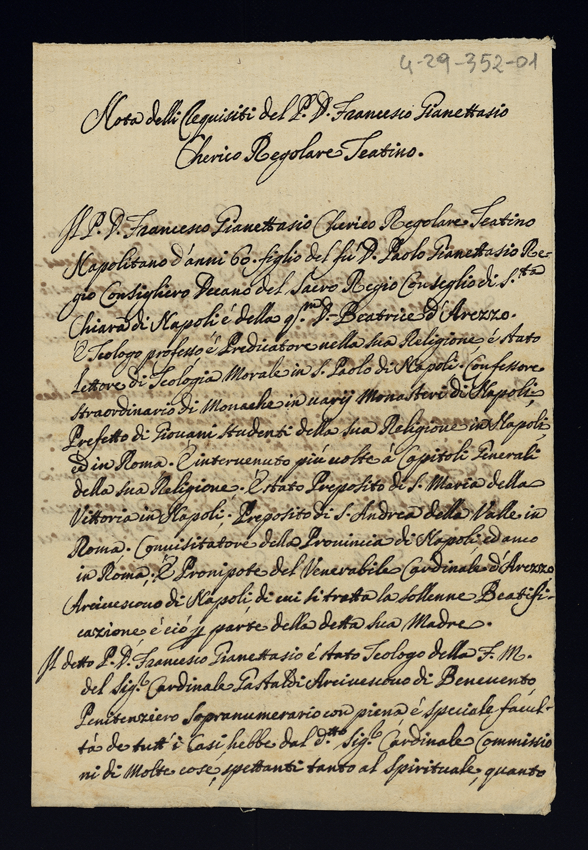 4-29-352-01
Nota delli Requisiti del P. D. Francesco Gianettasio
Cherico Regolare Teatino.
Il P. D. Francesco Gianettasio Cherico Regolare Teatino
Napolitano d'anni 60. figlio del fù D. Paolo Gianettasio Re-
gio Consigliero Decano del Sacro Regio Conseglio di S.ta
Chiara di Napoli é della q.m D. Beatrice d'Arezzo.
È Teologo professo é Predicatore nella sua Religione é stato
lettore di Teologia Morale in S. Paolo di Napoli. Confessore
straordinario di Monache in varij Monasteri di Napoli,
Prefetto di Giouani studenti della sua Religione in Napoli,
ed in Roma. È interuenuto più uolte á Capitoli Generali
della sua Religione. È stato Preposito di S. Maria della
Vittoria in Napoli. Preposito di S. Andrea della Valle in
Roma. Conuisitatore della Prouincia di Napoli, ed anco
in Roma. È Pronipote del Venerabile Cardinale d'Arezzo
Arciuescouo di Napoli, di cui si tratta la sollenne Beatifi-
cazione é ció p parte della detta sua Madre.
Il detto P. D. Francesco Gianettasio é stato Teologo della F. M.
del Sig.r Cardinale Gastaldi Arciuescouo di Beneuento,
Penitenziero sopranumerario con piena é speciale facul-
tá de tutt'i Casi hebbe dal d.tto Sig.r Cardinale Commissio
ni di Molte cose, spettanti tanto al Spirituale, quanto